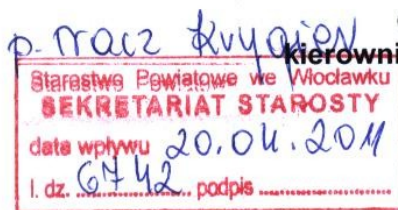 p.
kierowni
Starostwo Powiatowe we Włocławku
SEKRETARIAT STAROSTY
data wpływu 20.04.2011
l. dz. 6742 podpis